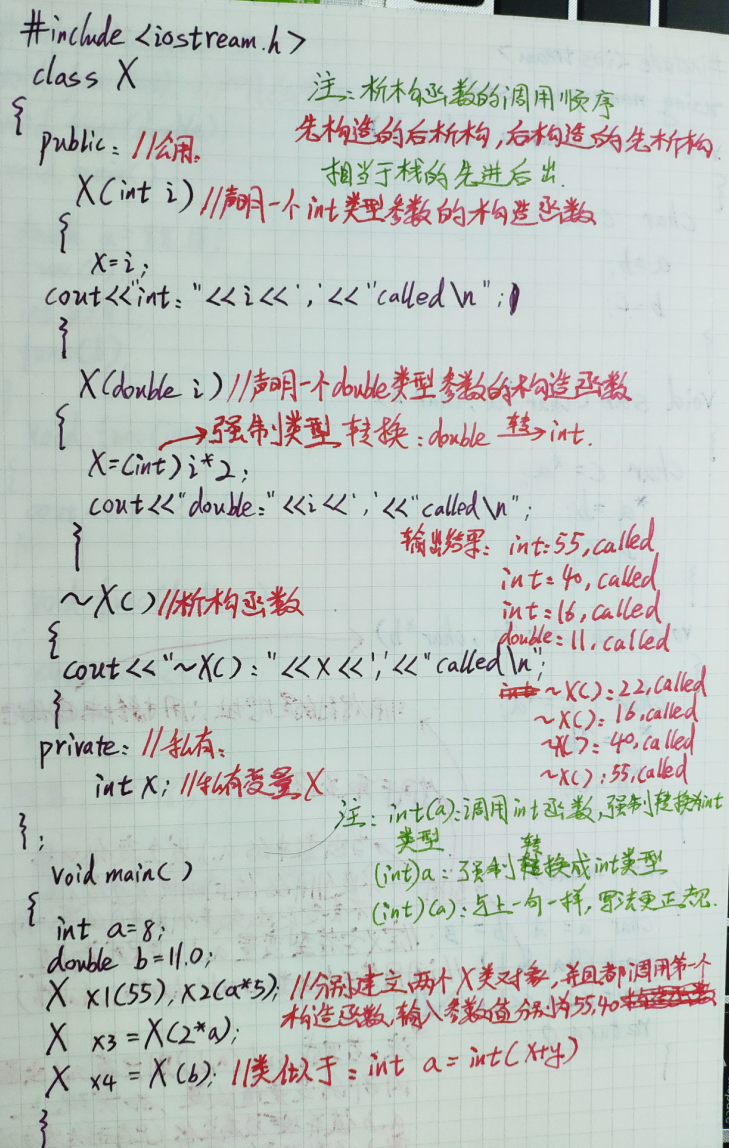 #include <iostream.h>
class X
注：析构函数的调用顺序
{
先构造的后析构，后构造的先析构.
public: //公用。
相当于栈的先进后出.
X(int i) //声明一个int类型参数的构造函数
{
X=i;
cout<<"int: "<<i<<','<<"called\n";
}
X(double i) //声明一个double类型参数的构造函数
{
→强制类型转换：double 转→ int.
X=(int)i*2;
cout<<"double:"<<i<<','<<"called\n";
}
输出结果: int:55,called
int:40,called
int:16,called
double:11,called
~X() //析构函数
{
cout<<"~X():"<<X<<','<<"called\n";
}
~X():22,called
~X():16,called
~X():40,called
~X():55,called
private: //私有:
int X; //私有变量X
};
注: int(a):调用int函数,强制转换为int
类型
(int)a:强制转换成int类型
(int)(a):与上一句一样,写法更正规.
void main()
{
int a=8;
double b=11.0;
X x1(55), x2(a*5); //分别建立两个X类对象,并且都调用第一个
构造函数,输入参数值分别为55,40
X x3=X(2*a);
X x4=X(b); //类似于: int a=int(x+y)
}